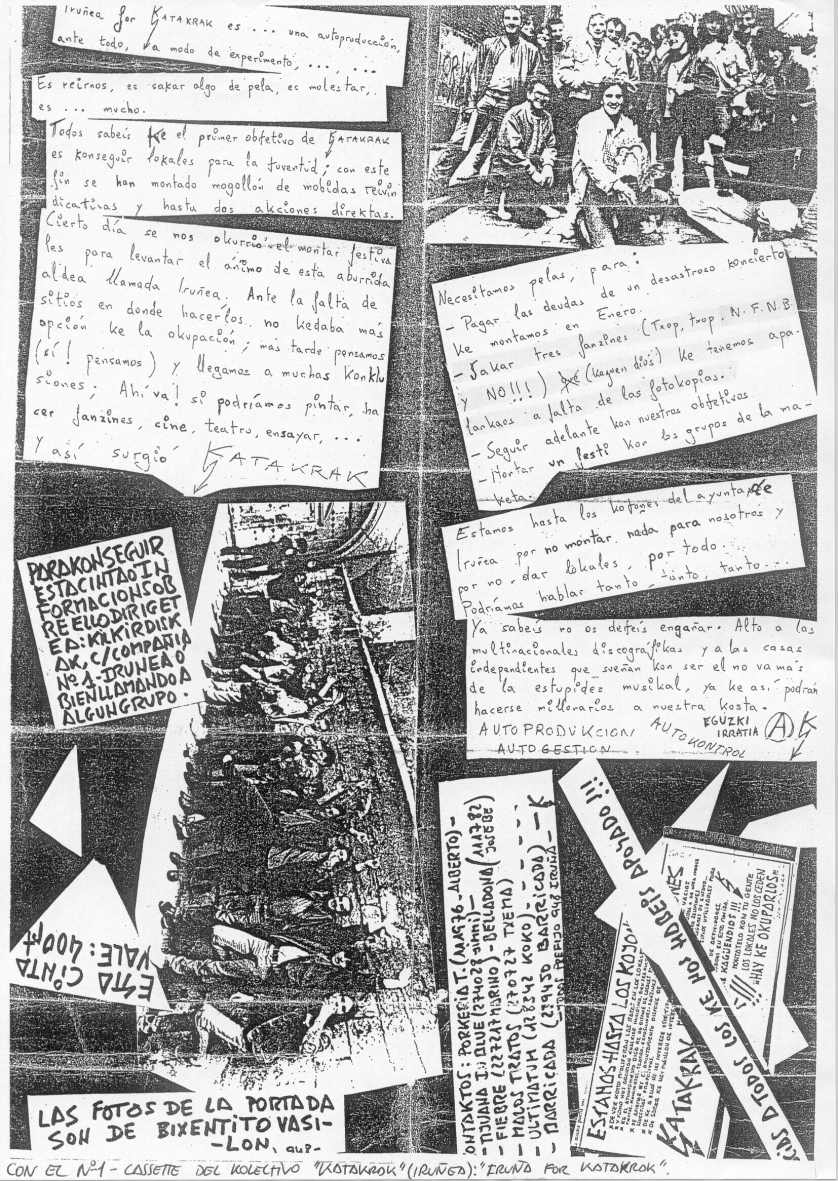 Iruñea for KATAKRAK es ... una autoproducción,
ante todo, a modo de experimento, ... , ... , ...
Es reirnos, es sakar algo de pela, es molestar,
es ... mucho.
Todos sabeis ke el primer objetivo de KATAKRAK
es konseguir lokales para la juventud; con este
fin se han montado mogollón de mobidas reivin
dicativas y hasta dos akciones direktas.
Cierto día se nos okurrió el montar festiva
les para levantar el ánimo de esta aburrida
aldea llamada Iruñea. Ante la falta de
sitios en donde hacerlos no kedaba más
opción ke la okupación; más tarde pensamos
(sí! pensamos) y llegamos a muchas konklu
siones; Ahíva! si podríamos pintar, ha
cer fanzines, cine, teatro, ensayar, ....
y así surgió KATAKRAK
PARA KONSEGUIR
ESTA CINTA O IN
FORMACION SOB
RE ELLO DIRIGET
E A: KILKIR DISK
AK, C/COMPAÑIA
Nº 1-IRUNEA O
BIEN LLAMANDO A
ALGUN GRUPO.
ESTA CINTA
VALE: 400pt
LAS FOTOS DE LA PORTADA
SON DE BIXENTITO VASI-
-LON,
Necesitamos pelas, para:
- Pagar las deudas de un desastroso koncierto
ke montamos en Enero.
- Sakar tres fanzines (Txop, txop, N.F.N.B.
y NO!!!) (kagüen diós) ke tenemos apa-
lankaos a falta de las fotokopias.
- Seguir adelante kon nuestros objetivos.
- Montar un festi kon los grupos de la ma-
keta.
Estamos hasta los kojones del ayunta de
Iruñea por no montar nada para nosotros y
por no dar lokales, por todo...
Podríamos hablar tanto, tanto, tanto...
Ya sabeis no os dejeis engañar. Alto a las
multinacionales discográfikas y a las casas
independientes que sueñan kon ser el no va más
de la estupides musikal, ya ke así podrán
hacerse millonarios a nuestra kosta.
AUTOPRODUKCION
AUTOGESTION
AUTOKONTROL
EGUZKI
IRRATIA
A K
KONTAKTOS: PORKERIA T. (111976-ALBERTO)-
- FIEBRE (227247 MURINO) - BELLADONA (111782
JOSEBE)
- MALOS TRATOS (270727 TXEMA)
- ULTIMATUM (118542 KOKO)
- BARRICADA (229430 BARRICADA) - K
A TODOS LOS KE NOS HABEIS APOYADO!!!
ESTAMOS HASTA LOS KOJONES
KATAKRAK
LOS LOKALES NO LOS CEDEN
¡¡¡HAY KE OKUPARLOS!!!
CON EL Nº1 - CASSETTE DEL KOLECTIVO "KATAKRAK" (IRUÑEA): "IRUÑA FOR KATAKRAK".